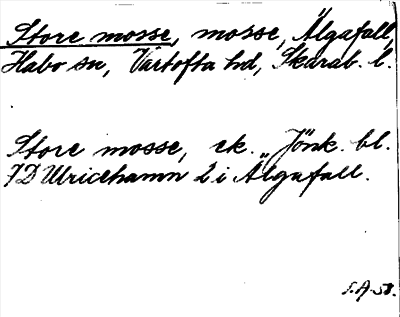 Store mosse, mosse, Älgafall,
Habo sn, Vartofta hd, Skarab. l.
Store mosse, ek. "Jönk. bl.
7D Ulricehamn 2 i Älgafall.
S.A. 58.